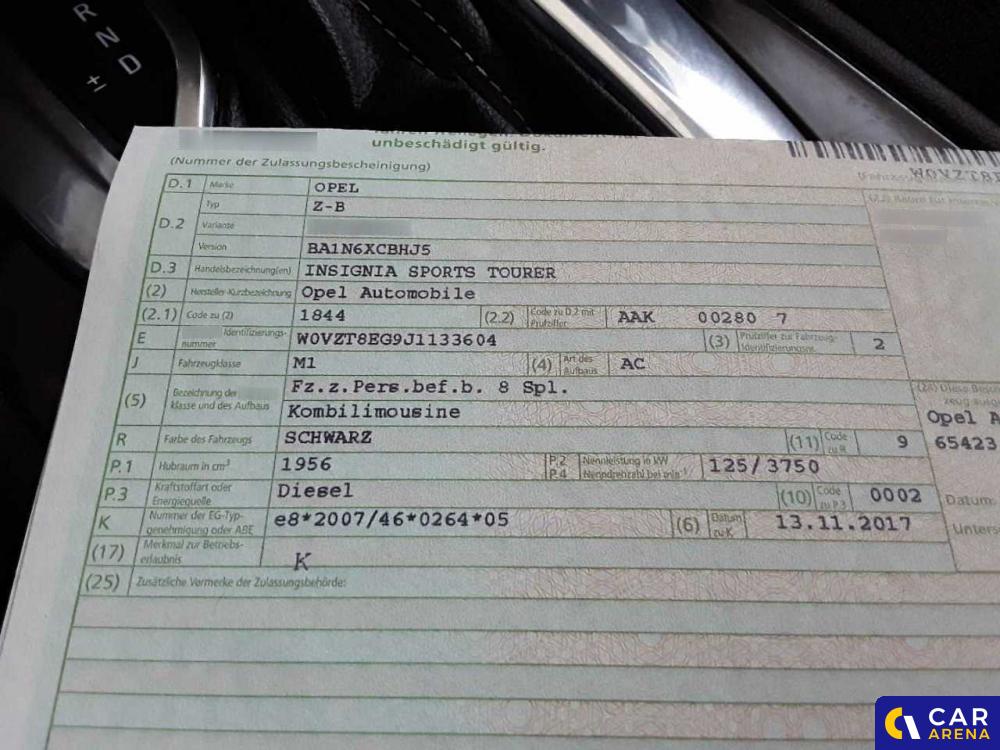 R
N
D
±
unbeschädigt gültig.
(Nummer der Zulassungsbescheinigung)
D.1 Marke OPEL
D.2 Typ Z-B
Variante
Version BA1N6XCBHJ5
D.3 Handelsbezeichnung(en) INSIGNIA SPORTS TOURER
(2) Hersteller-Kurzbezeichnung Opel Automobile
(2.1) Code zu (2) 1844 (2.2) Code zu D.2 mit Prüfziffer AAK 00280 7
E Identifizierungs-nummer W0VZT8EG9J1133604 (3) Prüfziffer zur Fahrzeug-Identifizierungsnr. 2
J Fahrzeugklasse M1 (4) Art des Aufbaus AC
(5) Bezeichnung der klasse und des Aufbaus Fz.z.Pers.bef.b. 8 Spl.
Kombilimousine
R Farbe des Fahrzeugs SCHWARZ (11) Code zu R 9
P.1 Hubraum in cm³ 1956 P.2 P.4 Nennleistung in kW Nenndrehzahl bei min⁻¹ 125/3750
P.3 Kraftstoffart oder Energiequelle Diesel (10) Code zu P.3 0002
K Nummer der EG-Typ-genehmigung oder ABE e8*2007/46*0264*05 (6) Datum zu K 13.11.2017
(17) Merkmal zur Betriebs-erlaubnis K
(25) Zusätzliche Vermerke der Zulassungsbehörde:
W0VZT8E
Opel A
65423
Datum:
Unters
CAR
ARENA